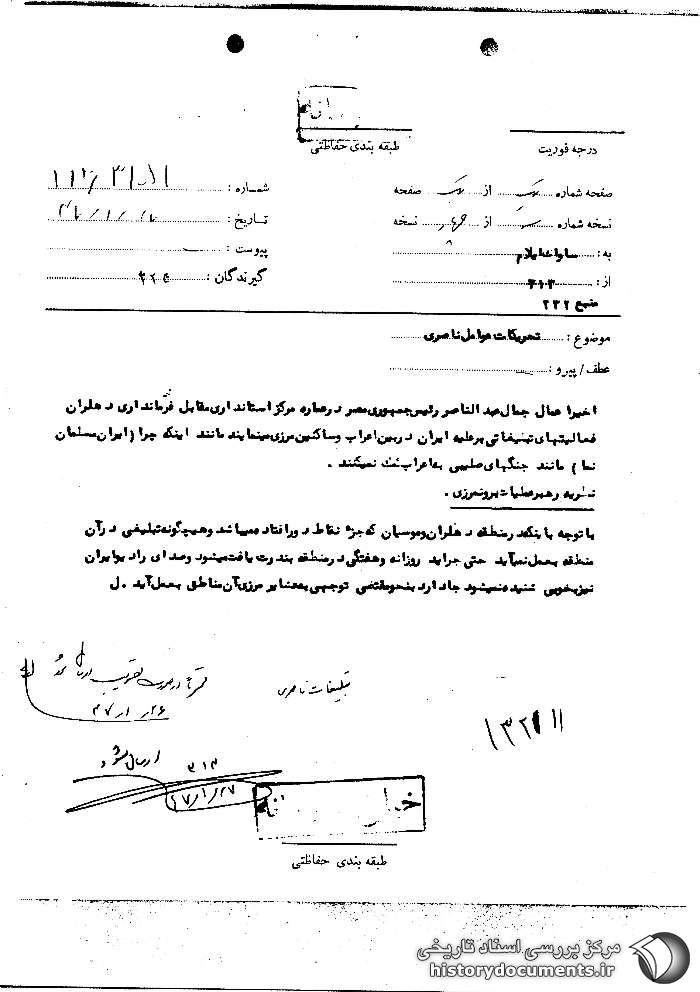 درجه فوریت
طبقه بندی حفاظتی
صفحه شماره یک از یک صفحه
شماره :
نسخه شماره از چهار نسخه
تاریخ :
به : ساواک ایلام
پیوست :
از : ۳۱۳
گیرندگان :
منبع ۲۳۲
موضوع : تحریکات عوامل ناصری
عطف / پیرو :
اخیرا عمال جمال عبد الناصر رئیس جمهوری مصر در عماره مرکز استانداری مقابل فرمانداری دهلران
فعالیتهای تبلیغاتی بر علیه ایران در بین اعراب و ساکنین مرزی مینمایند مانند اینکه چرا ( ایران مسلمان
نما ) مانند جنگهای صلیبی به اعراب کمک نمیکنند .
نظریه رهبر عملیات برونمرزی .
با توجه باینکه در منطقه دهلران و موسیان که جزء نقاط دور افتاده میباشد و هیچگونه تبلیغی در آن
منطقه بعمل نمیآید حتی جراید روزانه و هفتگی در منطقه بندرت یافت میشود و صدای رادیو ایران
نیز بخوبی شنیده نمیشود جا دارد بنحو مقتضی توجهی به عشایر مرزی آن مناطق بعمل آید . ل
تبلیغات ناصری
۲۶ ر ۱ ر ۴۷
ارسال شود
۳۱۳
۴۷/۱/۲۷
طبقه بندی حفاظتی
مرکز بررسی اسناد تاریخی
historydocuments.ir